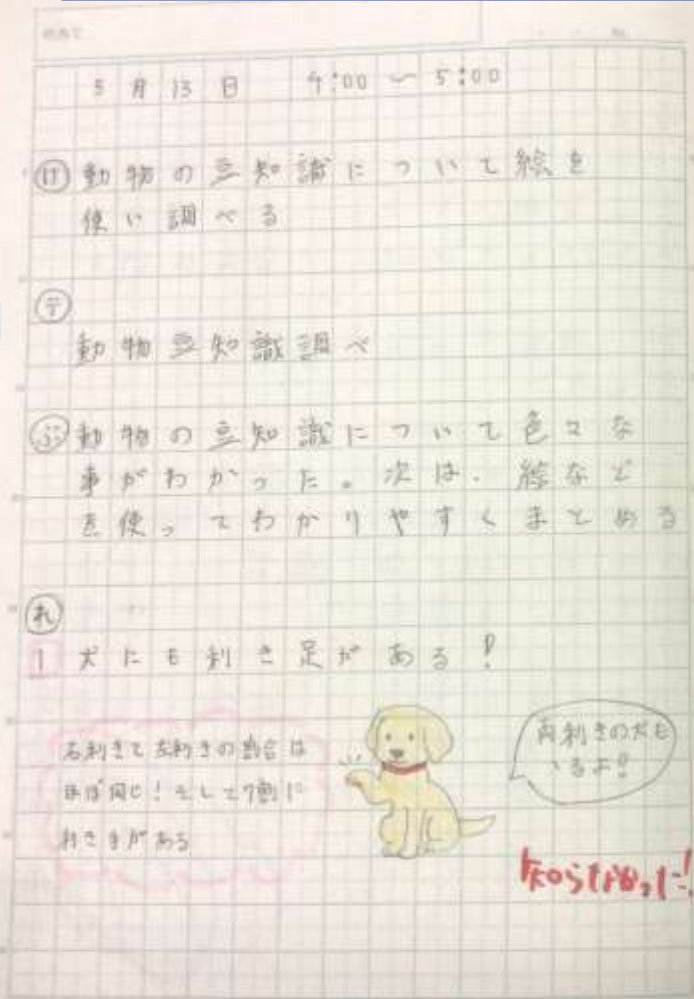 5月13日 4:00〜5:00
け 動物の豆知識について絵を
使い調べる
テ
動物豆知識調べ
ぶ 動物の豆知識について色々な
事がわかった。次は、絵など
を使ってわかりやすくまとめる
れ
1 犬にも利き足がある!
右利きと左利きの割合は
ほぼ同じ!そして7割に
利き手がある
両利きの犬も
いるよ!!
知らなかった!